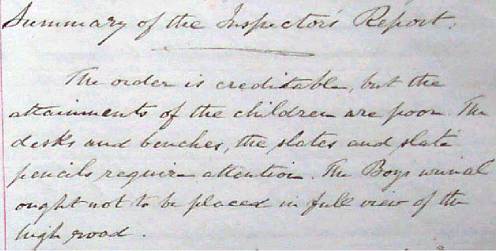 Summary of the Inspector's Report.
The order is creditable, but the
attainments of the children are poor. The
desks and benches, the slates and slate
pencils require attention. The Boys urinal
ought not to be placed in full view of the
high road.